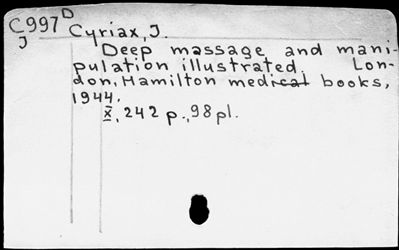 C997D Cyriax, J.
J
Deep massage and mani-
pulation illustrated. Lon-
don, Hamilton medical books,
1944.
x, 242 p., 98 pl.